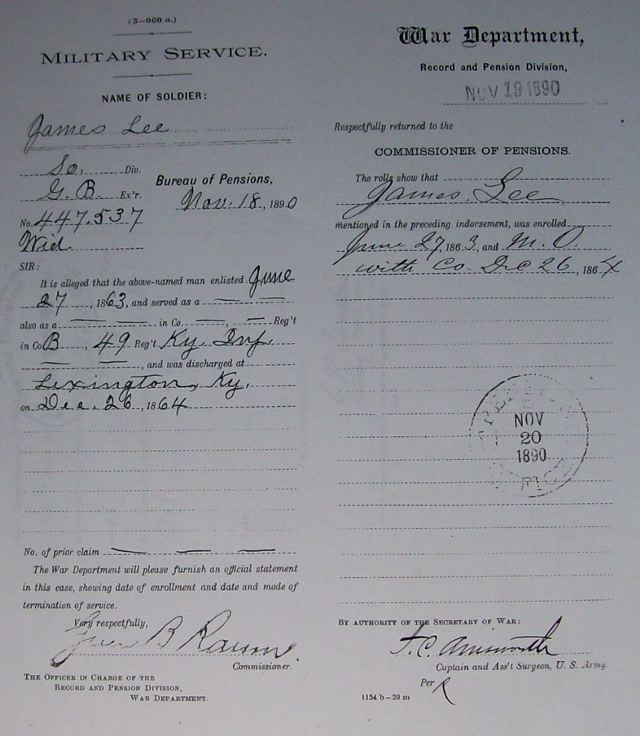 (3—060 a.)
MILITARY SERVICE.
NAME OF SOLDIER:
James Lee
So. Div.
G. B Ex'r.
Bureau of Pensions,
No. 447.537
Nov. 18, 1890
Wid
SIR:
It is alleged that the above-named man enlisted June
27, 1863, and served as a
also as a in Co. Reg't
in Co B, 49 Reg't Ky. Inf.
, and was discharged at
Lexington, Ky.
on Dec. 26, 1864
No. of prior claim
The War Department will please furnish an official statement
in this case, showing date of enrollment and date and mode of
termination of service.
Very respectfully,
Green B Raum
Commissioner.
THE OFFICER IN CHARGE OF THE
RECORD AND PENSION DIVISION,
WAR DEPARTMENT.
War Department,
Record and Pension Division,
NOV 19 1890
Respectfully returned to the
COMMISSIONER OF PENSIONS.
The rolls show that
James Lee
mentioned in the preceding indorsement, was enrolled
June 27, 1863, and M. O.
with Co. Dec 26, 1864
NOV
20
1890
BY AUTHORITY OF THE SECRETARY OF WAR:
F. C. Ainsworth
Captain and Ass't Surgeon, U. S. Army.
Per R
1154 b—20 m